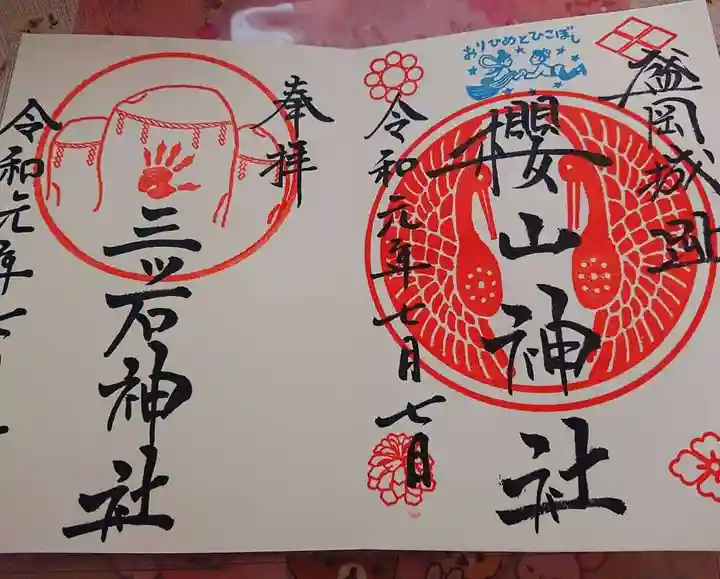 盛岡城
おりひめとひこぼし
櫻山神社
令和元年七月七日
奉拝
三ッ石神社
令和元年七